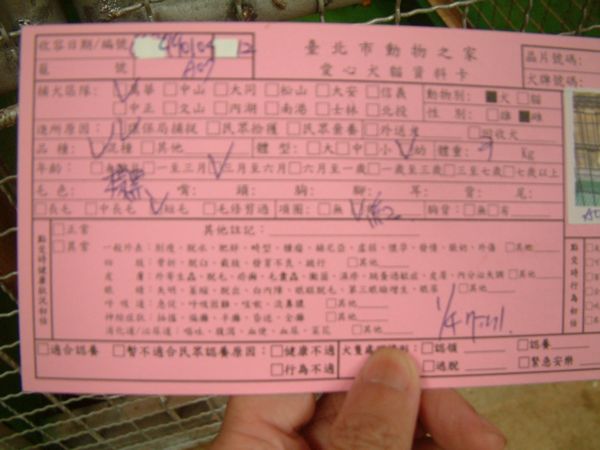 收容日期/編號 440104 12 臺北市動物之家 晶片號碼:
籠號 A07 愛心犬貓資料卡 犬牌號碼:
捕犬區隊: 萬華 □中山 □大同 □松山 □大安 □信義 動物別: ■犬 □貓
□中正 □文山 □內湖 □南港 □士林 □北投 性別: □雄 ■雌
進所原因: 環保局捕捉 □民眾拾獲 □民眾棄養 □外送產 □回收犬
品種: 混種 □其他 體型: □大 □中 □小 幼 體重: kg
年齡: □一至三月 三月至六月 □六月至一歲 □一歲至三歲 □三至七歲 □七歲以上
毛色: 嘴: 頭: 胸: 腳: 耳: 背: 尾:
□長毛 □中長毛 短毛 □毛修剪過 項圈: □無 紅 胸背: □無 □有
點交時健康狀況初估 □正常 其他註記:
□異常 一般外表: 削瘦、脫水、肥胖、畸型、腫瘤、疝氣、虛弱、懷孕、發情、眼齒、外傷 □其他
四肢: 骨折、脫臼、截肢、發育不良、跛行 □其他
皮膚: 外寄生蟲、脫毛、疥癬、毛囊蟲、黴菌、濕疹、跳蚤過敏症、皮莩、內分泌失調 □其他
眼睛: 失明、萎縮、脫出、白內障、眼瞼脫毛、第三眼瞼增生、眼屎 □其他
呼吸道: 急促、呼吸困難、咳嗽、流鼻膿 □其他
神經症狀: 抽搐、癲癇、半身、昏迷、全癱 □其他
消化道/泌尿道: 嘔吐、腹瀉、血便、血尿、菜花 □其他
點交時行為初估
□適合認養 □暫不適合民眾認養原因: □健康不適 犬隻處理情形: □認領 □認養
□行為不適 □逃脫 □緊急安樂